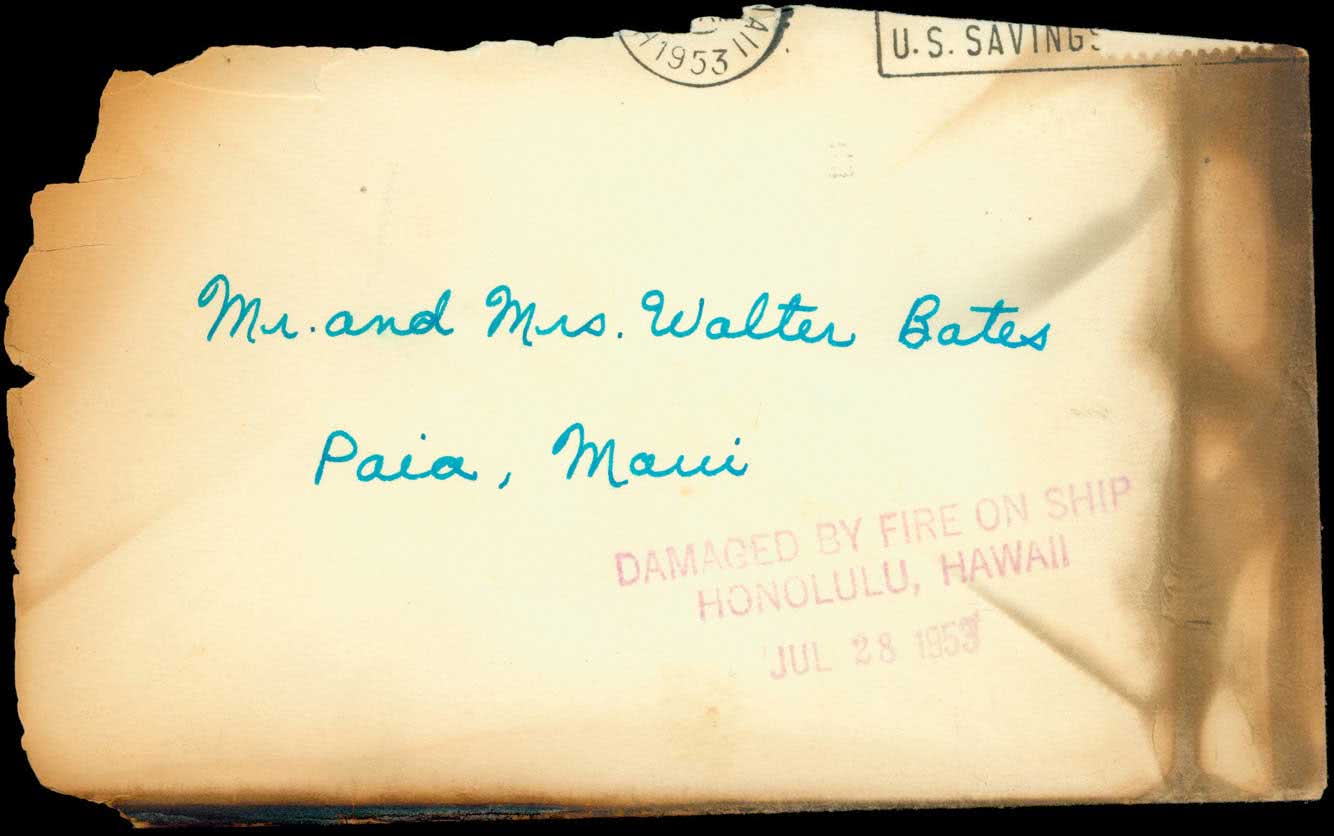 1953
U.S. SAVINGS
Mr. and Mrs. Walter Bates
Paia, Maui
DAMAGED BY FIRE ON SHIP
HONOLULU, HAWAII
JUL 28 1953